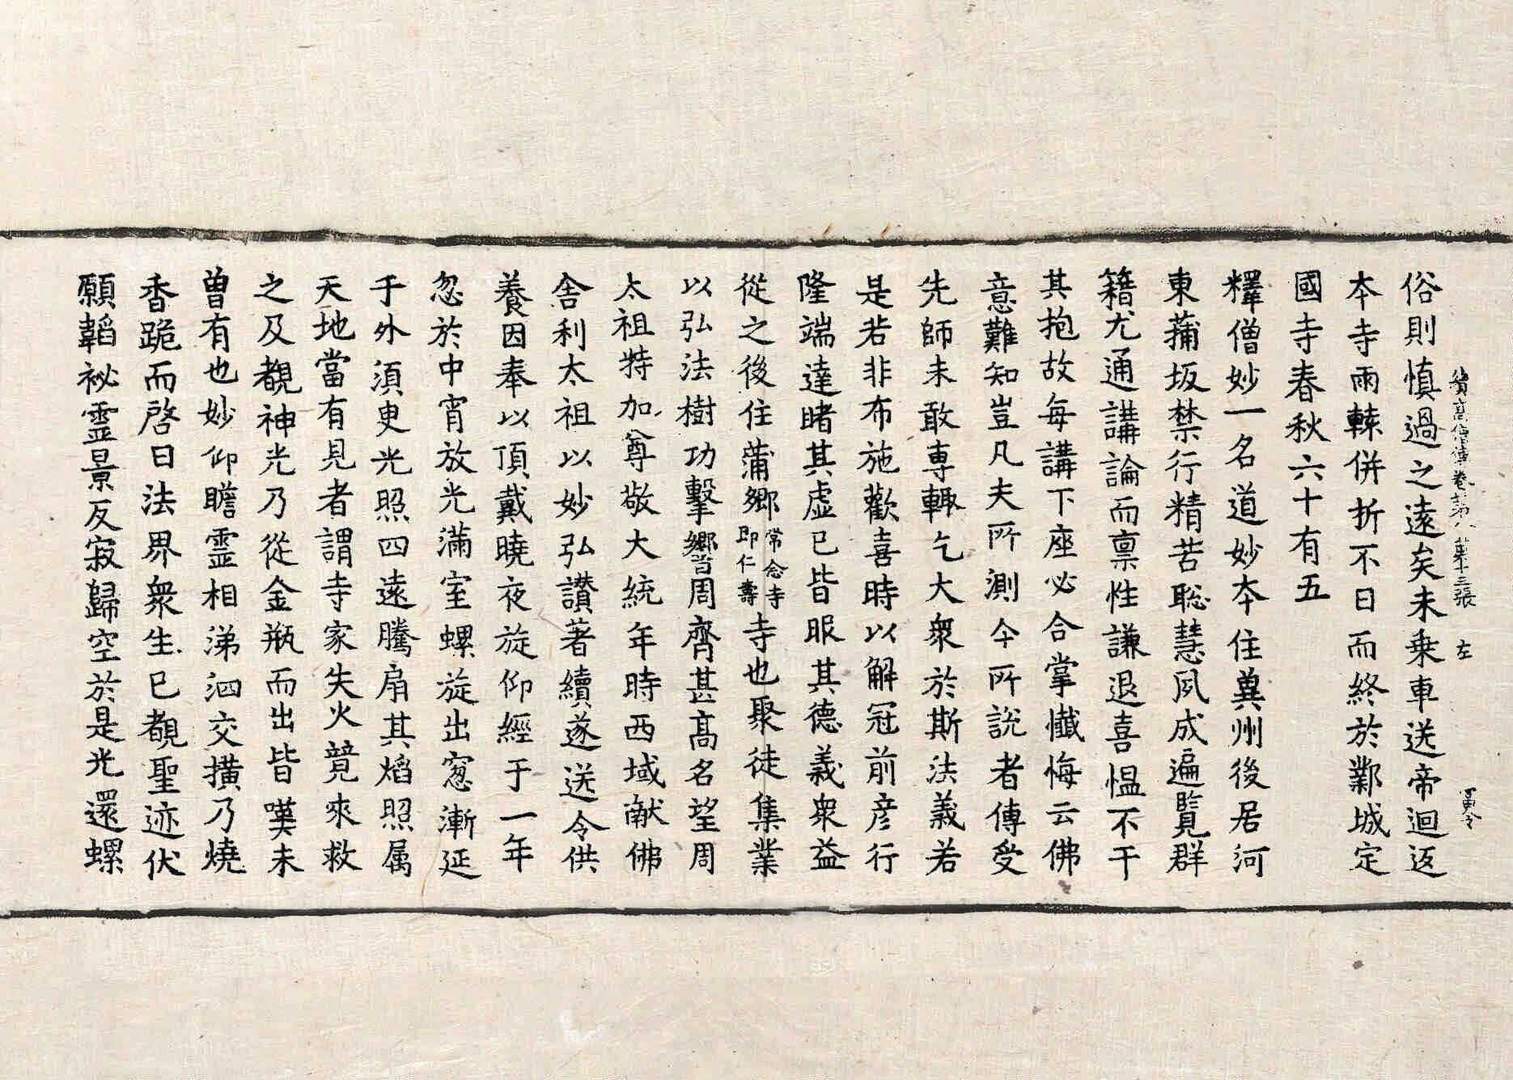 續高僧傳卷第八 第十三張 左
俗則慎過之遠矣未乗車送帝迴返
本寺兩轅併折不日而終於鄴城定
國寺春秋六十有五
釋僧妙一名道妙本住冀州後居河
東蒲坂禁行精苦聡慧夙成遍覧群
籍尤通講論而禀性謙退喜愠不干
其抱故每講下座必合掌懺悔云佛
意難知豈凡夫所測今所説者傳受
先師未敢専輙乞大衆於斯法義若
是若非布施歡喜時以解冠前彦行
隆端達睹其虚已皆服其德義衆益
從之後住蒲鄉常念寺即仁壽寺也聚徒集業
以弘法樹功擊響周齊甚髙名望周
太祖特加尊敬大統年時西域献佛
舍利太祖以妙弘讃著續遂送令供
養因奉以頂戴曉夜旋仰經于一年
忽於中宵放光滿室螺旋出窓漸延
于外須臾光照四遠騰扇其焰照属
天地當有見者謂寺家失火競來救
之及覩神光乃從金瓶而出皆嘆未
曽有也妙仰瞻靈相涕泗交横乃燒
香跪而啓曰法界衆生已覩聖迹伏
願韜祕靈景反寂歸空於是光還螺